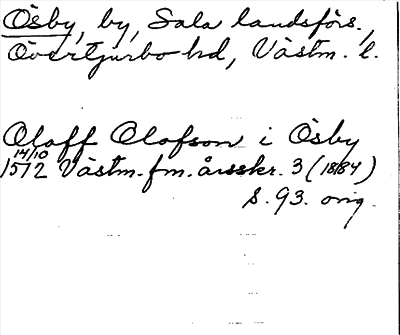 Ösby, by, Sala landsförs.,
Övertjurbo hd, Västm. l.
Olaff Olafson i Ösby
14/10
1572 Västm. fm. årsskr. 3 (1884)
S. 93. orig.